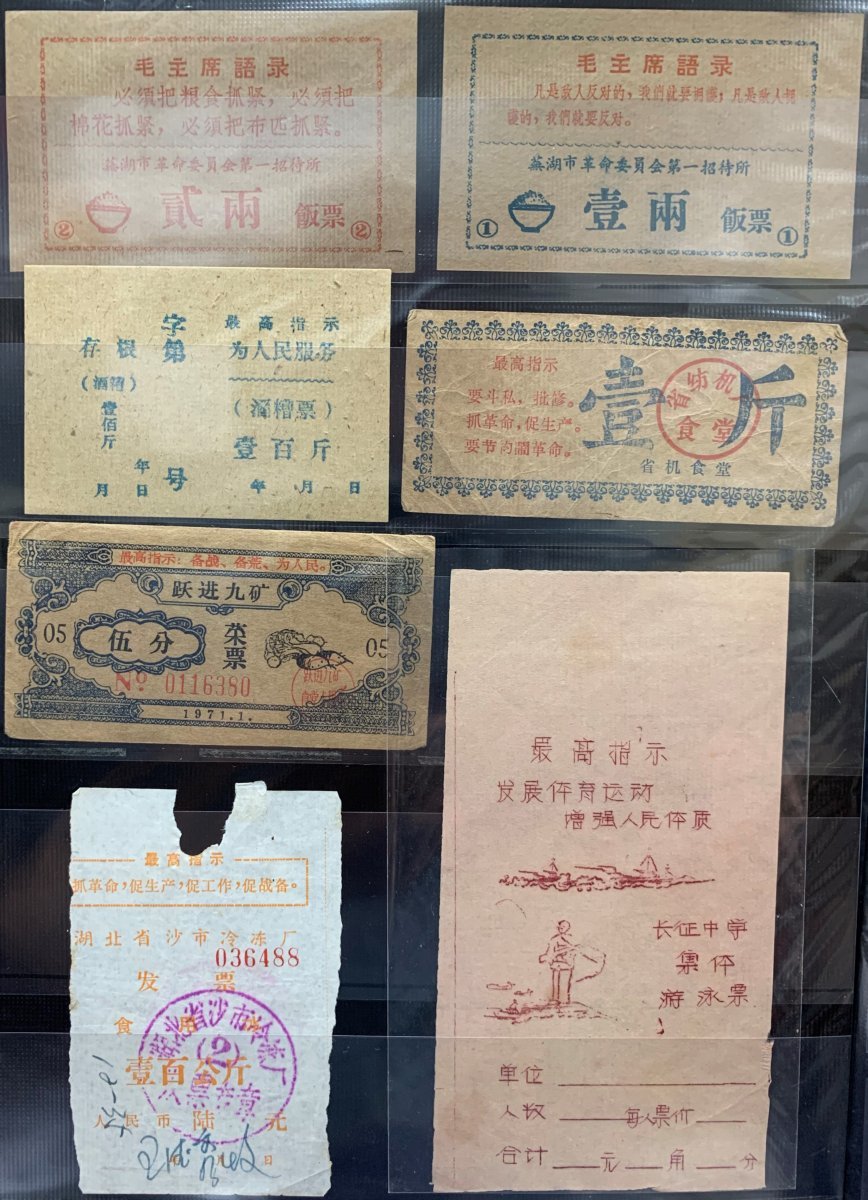 毛主席語录
必须把粮食抓紧，必须把
棉花抓紧，必须把布匹抓紧。
蕪湖市革命委員会第一招待所
② 貳兩 飯票 ②
毛主席語录
凡是敌人反对的，我們就要拥護；凡是敌人拥
護的，我們就要反对。
蕪湖市革命委員会第一招待所
① 壹兩 飯票 ①
存根
（酒糟）
壹佰斤
年
月 日
字第
号
最高指示
为人民服务
（酒糟票）
壹百斤
年 月 日
最高指示
要斗私，批修。
抓革命，促生产。
要节约闹革命。
壹斤
食堂
省机食堂
最高指示：备战、备荒、为人民。
跃进九矿
05 伍分 菜票 05
No 0116380
跃进九矿
1971.1.
最高指示
抓革命，促生产，促工作，促战备。
湖北省沙市冷冻厂
036488
发 票
食 用
壹百公斤
人民币 陆 元
湖北省沙市冷冻厂
(2)
发票专章
最高指示
发展体育运动
增强人民体质
长征中学
集体
游泳票
单位
人数 每人票价
合计 元 角 分